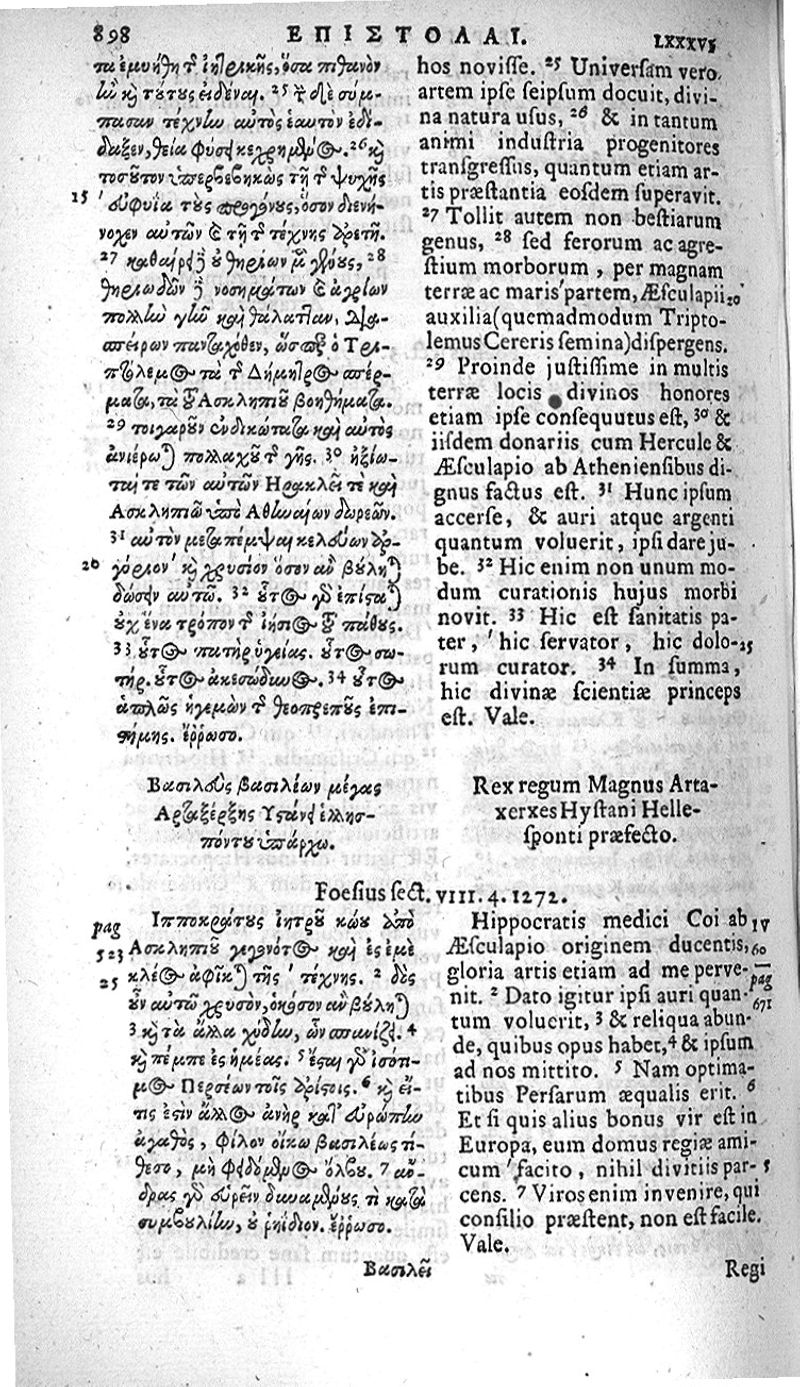 898
ΕΠΙΣΤΟΛΑΙ.
LXXXVI
τα ἐμυήθη τ̃ ἰητρικῆς, ὅσα πιθανὸν
ἰῶ κ̀ τούτους εἰδέναι. ²⁵ τ̀ δὲ σύμ-
πασαν τέχνἰω αὐτὸς ἑαυτὸν ἐδί-
δαξεν, θεία φύσι κεχρημένος. ²⁶ κ̀
τοσοῦτον ὑπερβεβηκὼς τῇ τ̃ ψυχῆς
15 ’ εὐφυΐα τοὺς προγόνους, ὅσον διενή-
νοχεν αὐτῶν & τῇ τ̃ τέχνης ἀρετῇ.
²⁷ καθαίρει ἢ οὐ θηρίων μ̀ γένος, ²⁸
θηριωδῶν ἢ νοσημάτων & ἀγρίων
πολλἰω γἰῶ καὶ θάλατταν, δια-
σπείρων πανταχόθεν, ὥσπερ ὁ Τρι-
πτόλεμος τὰ τ̃ Δήμητρος σπέρ-
ματα, τὰ τοῦ Ἀσκληπιοῦ βοηθήματα.
²⁹ τοιγαροῦν ἐνδικώτατα καὶ αὐτὸς
ἀνιέρωται πολλαχοῦ τ̃ γῆς. ³⁰ ἠξίω-
ταί τε τῶν αὐτῶν Ηρακλεῖ τε καὶ
Ἀσκληπιῷ ὑπὸ Ἀθἰωαίων δωρεῶν.
³¹ αὐτὸν μεταπέμψαι κελεύων ἀρ-
20 γύριον ’ κ̀ χρυσίον ὅσον ἂν βούληται
δώσειν αὐτῷ. ³² οὗτος γὸ ἐπίσταται
οὐχ ἕνα τρόπον τ̃ ἰήσιος τοῦ πάθους.
³³ οὗτος πατὴρ ὑγείας. οὗτος σω-
τήρ. οὗτος ἀκεσώδυνος. ³⁴ οὗτος
ἁπλῶς ἡγεμὼν τ̃ θεοπρεποῦς ἐπι-
στήμης. ἔῤῥωσο.
Βασιλεὺς βασιλέων μέγας
Ἀρταξέρξης Υστάνει ἑλλησ-
πόντου ὑπάρχῳ.
hos novisse. ²⁵ Universam vero
artem ipse seipsum docuit, divi-
na natura usus, ²⁶ & in tantum
animi industria progenitores
transgressus, quantum etiam ar-
tis præstantia eosdem superavit.
²⁷ Tollit autem non bestiarum
genus, ²⁸ sed ferorum ac agre-
stium morborum, per magnam
terræ ac maris ’ partem, Æsculapii 20
auxilia (quemadmodum Tripto-
lemus Cereris semina) dispergens.
²⁹ Proinde justissime in multis
terræ locis divinos honores
etiam ipse consequutus est, ³⁰ &
iisdem donariis cum Hercule &
Æsculapio ab Atheniensibus di-
gnus factus est. ³¹ Hunc ipsum
accerse, & auri atque argenti
quantum voluerit, ipsi dare ju-
be. ³² Hic enim non unum mo-
dum curationis hujus morbi
novit. ³³ Hic est sanitatis pa-
ter, ’ hic servator, hic dolo- 25
rum curator. ³⁴ In summa,
hic divinæ scientiæ princeps
est. Vale.
Rex regum Magnus Arta-
xerxes Hystani Helle-
sponti præfecto.
Foesius sect. VIII. 4. 1272.
Ἱπποκράτους ἰητροῦ κώου ἀπὸ
pag Ἀσκληπιοῦ γεγονότος καὶ ἐς ἐμὲ
523 κλέος ἀφῖκται τῆς ’ τέχνης. ² δὸς
25 οὖν αὐτῷ χρυσὸν, ὁκόσον ἂν βούληται
³ κ̀ τὰ ἄλλα χύδἰω, ὧν σπανίζει. ⁴
κ̀ πέμπε ἐς ἡμέας. ⁵ ἔσται γὸ ἰσότι-
μος Περσέων τοῖς ἀρίστοις. ⁶ κ̀ εἴ-
τις ἐστὶν ἄλλος ἀνὴρ κατ’ εὐρώπἰω
ἀγαθὸς, φίλον οἴκῳ βασιλέως τί-
θεσο, μὴ φειδόμενος ὄλβου. ⁷ ἄν-
δρας γὸ εὑρεῖν δυναμένους τὶ κατὰ
συμβουλίἰω, οὐ ῥηΐδιον. ἔῤῥωσο.
Hippocratis medici Coi ab IV
Æsculapio originem ducentis, 60
gloria artis etiam ad me perve- pag
nit. ² Dato igitur ipsi auri quan- 671
tum voluerit, ³ & reliqua abun-
de, quibus opus habet, ⁴ & ipsum
ad nos mittito. ⁵ Nam optima-
tibus Persarum æqualis erit. ⁶
Et si quis alius bonus vir est in
Europa, eum domus regiæ ami-
cum ’ facito, nihil divitiis par- 5
cens. ⁷ Viros enim invenire, qui
consilio præstent, non est facile.
Vale.
Βασιλεῖ
Regi